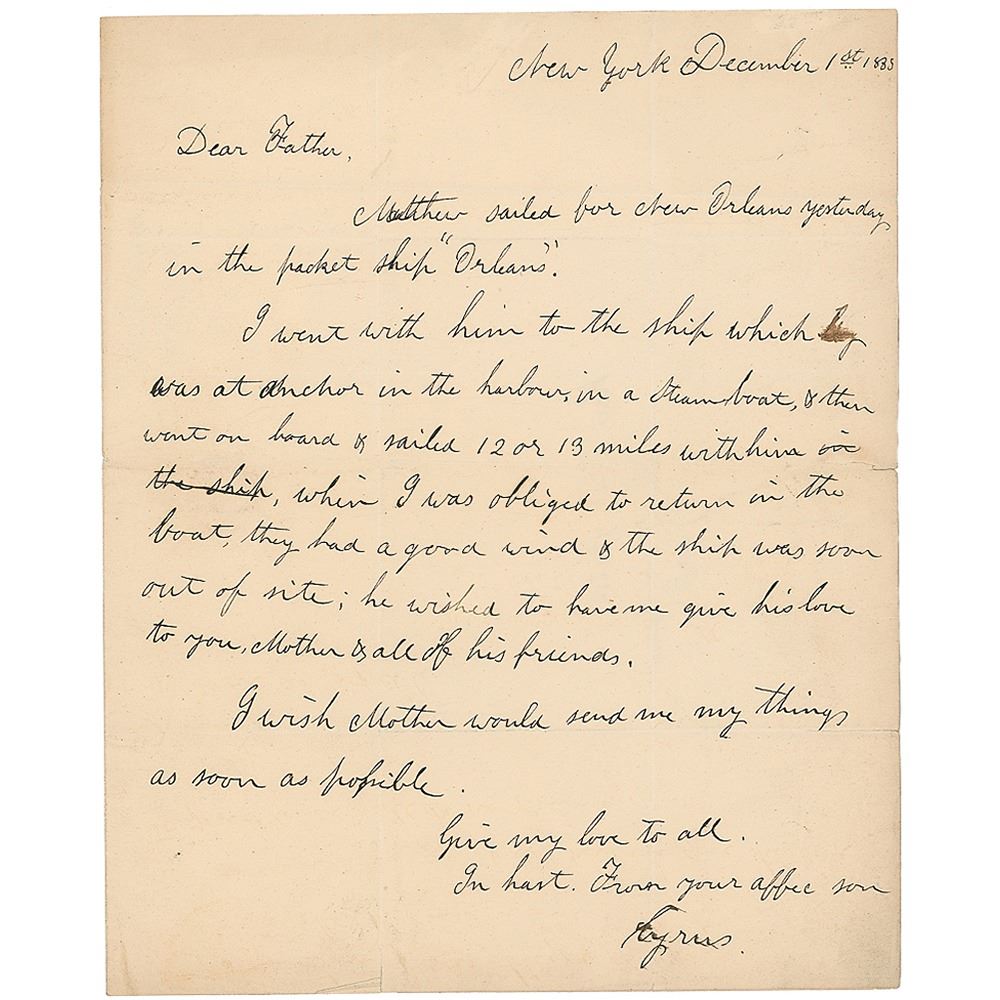 New York December 1st 1835
Dear Father,
Matthew sailed for New Orleans yesterday
in the packet ship "Orleans".
I went with him to the ship which
was at anchor in the harbour, in a Steam-boat, & then
went on board & sailed 12 or 13 miles with him in
the ship, when I was obliged to return in the
boat, they had a good wind & the ship was soon
out of site; he wished to have me give his love
to you, Mother & all of his friends.
I wish Mother would send me my things
as soon as possible.
Give my love to all.
In hast. From your affec son
Cyrus.